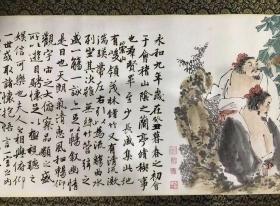 永和九年歲在癸丑暮春之初會
于會稽山陰之蘭亭脩稧事
也群賢畢至少長咸集此地
有崇山峻領茂林脩竹又有清流激
湍暎帶左右引以為流觴曲水
列坐其次雖無絲竹管絃之
盛一觴一詠亦足以暢敘幽情
是日也天朗氣清惠風和暢仰
觀宇宙之大俯察品類之盛
所以遊目騁懷足以極視聽之
娛信可樂也夫人之相與俯仰
一世或取諸懷抱悟言一室之內